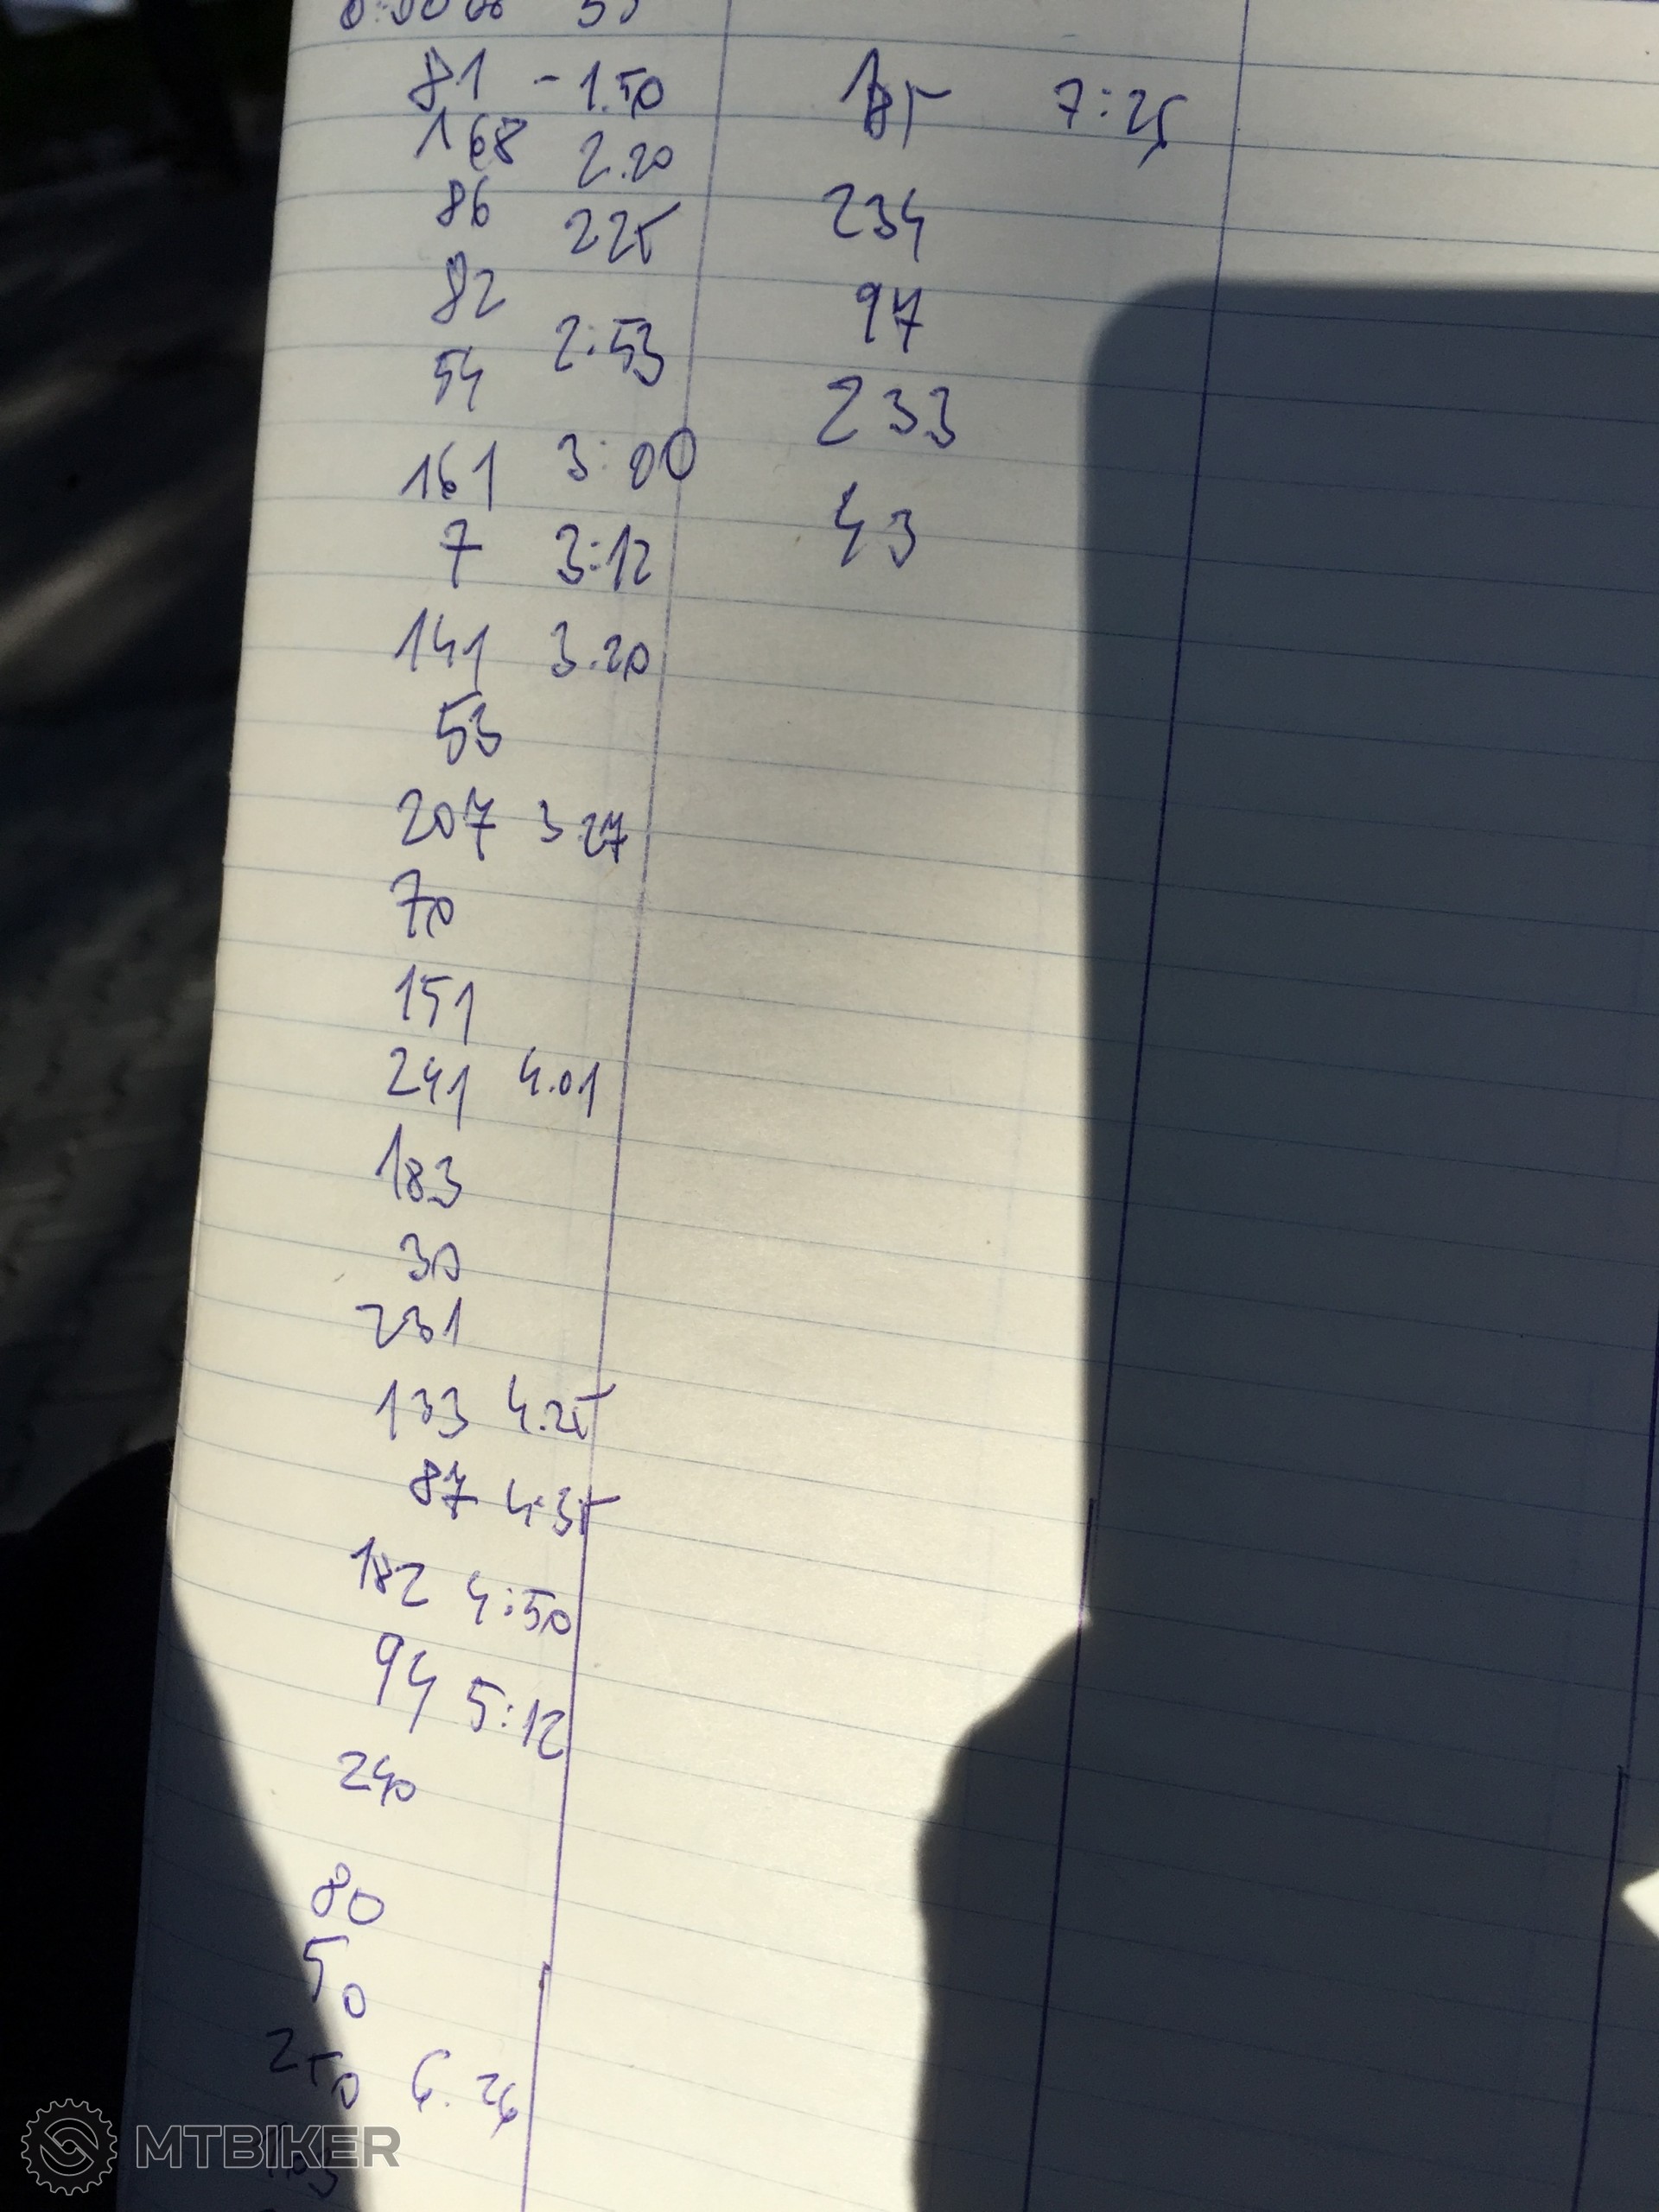 81 - 1.50
168 2.20
86 225
82
54 2:53
161 3:00
7 3:12
141 3.20
53
207 3 27
70
151
241 4.01
183
30
231
133 4.25
87 4:35
182 4:50
94 5:12
240
80
50
250 6.26
185 7:25
234
97
233
43
MTBIKER